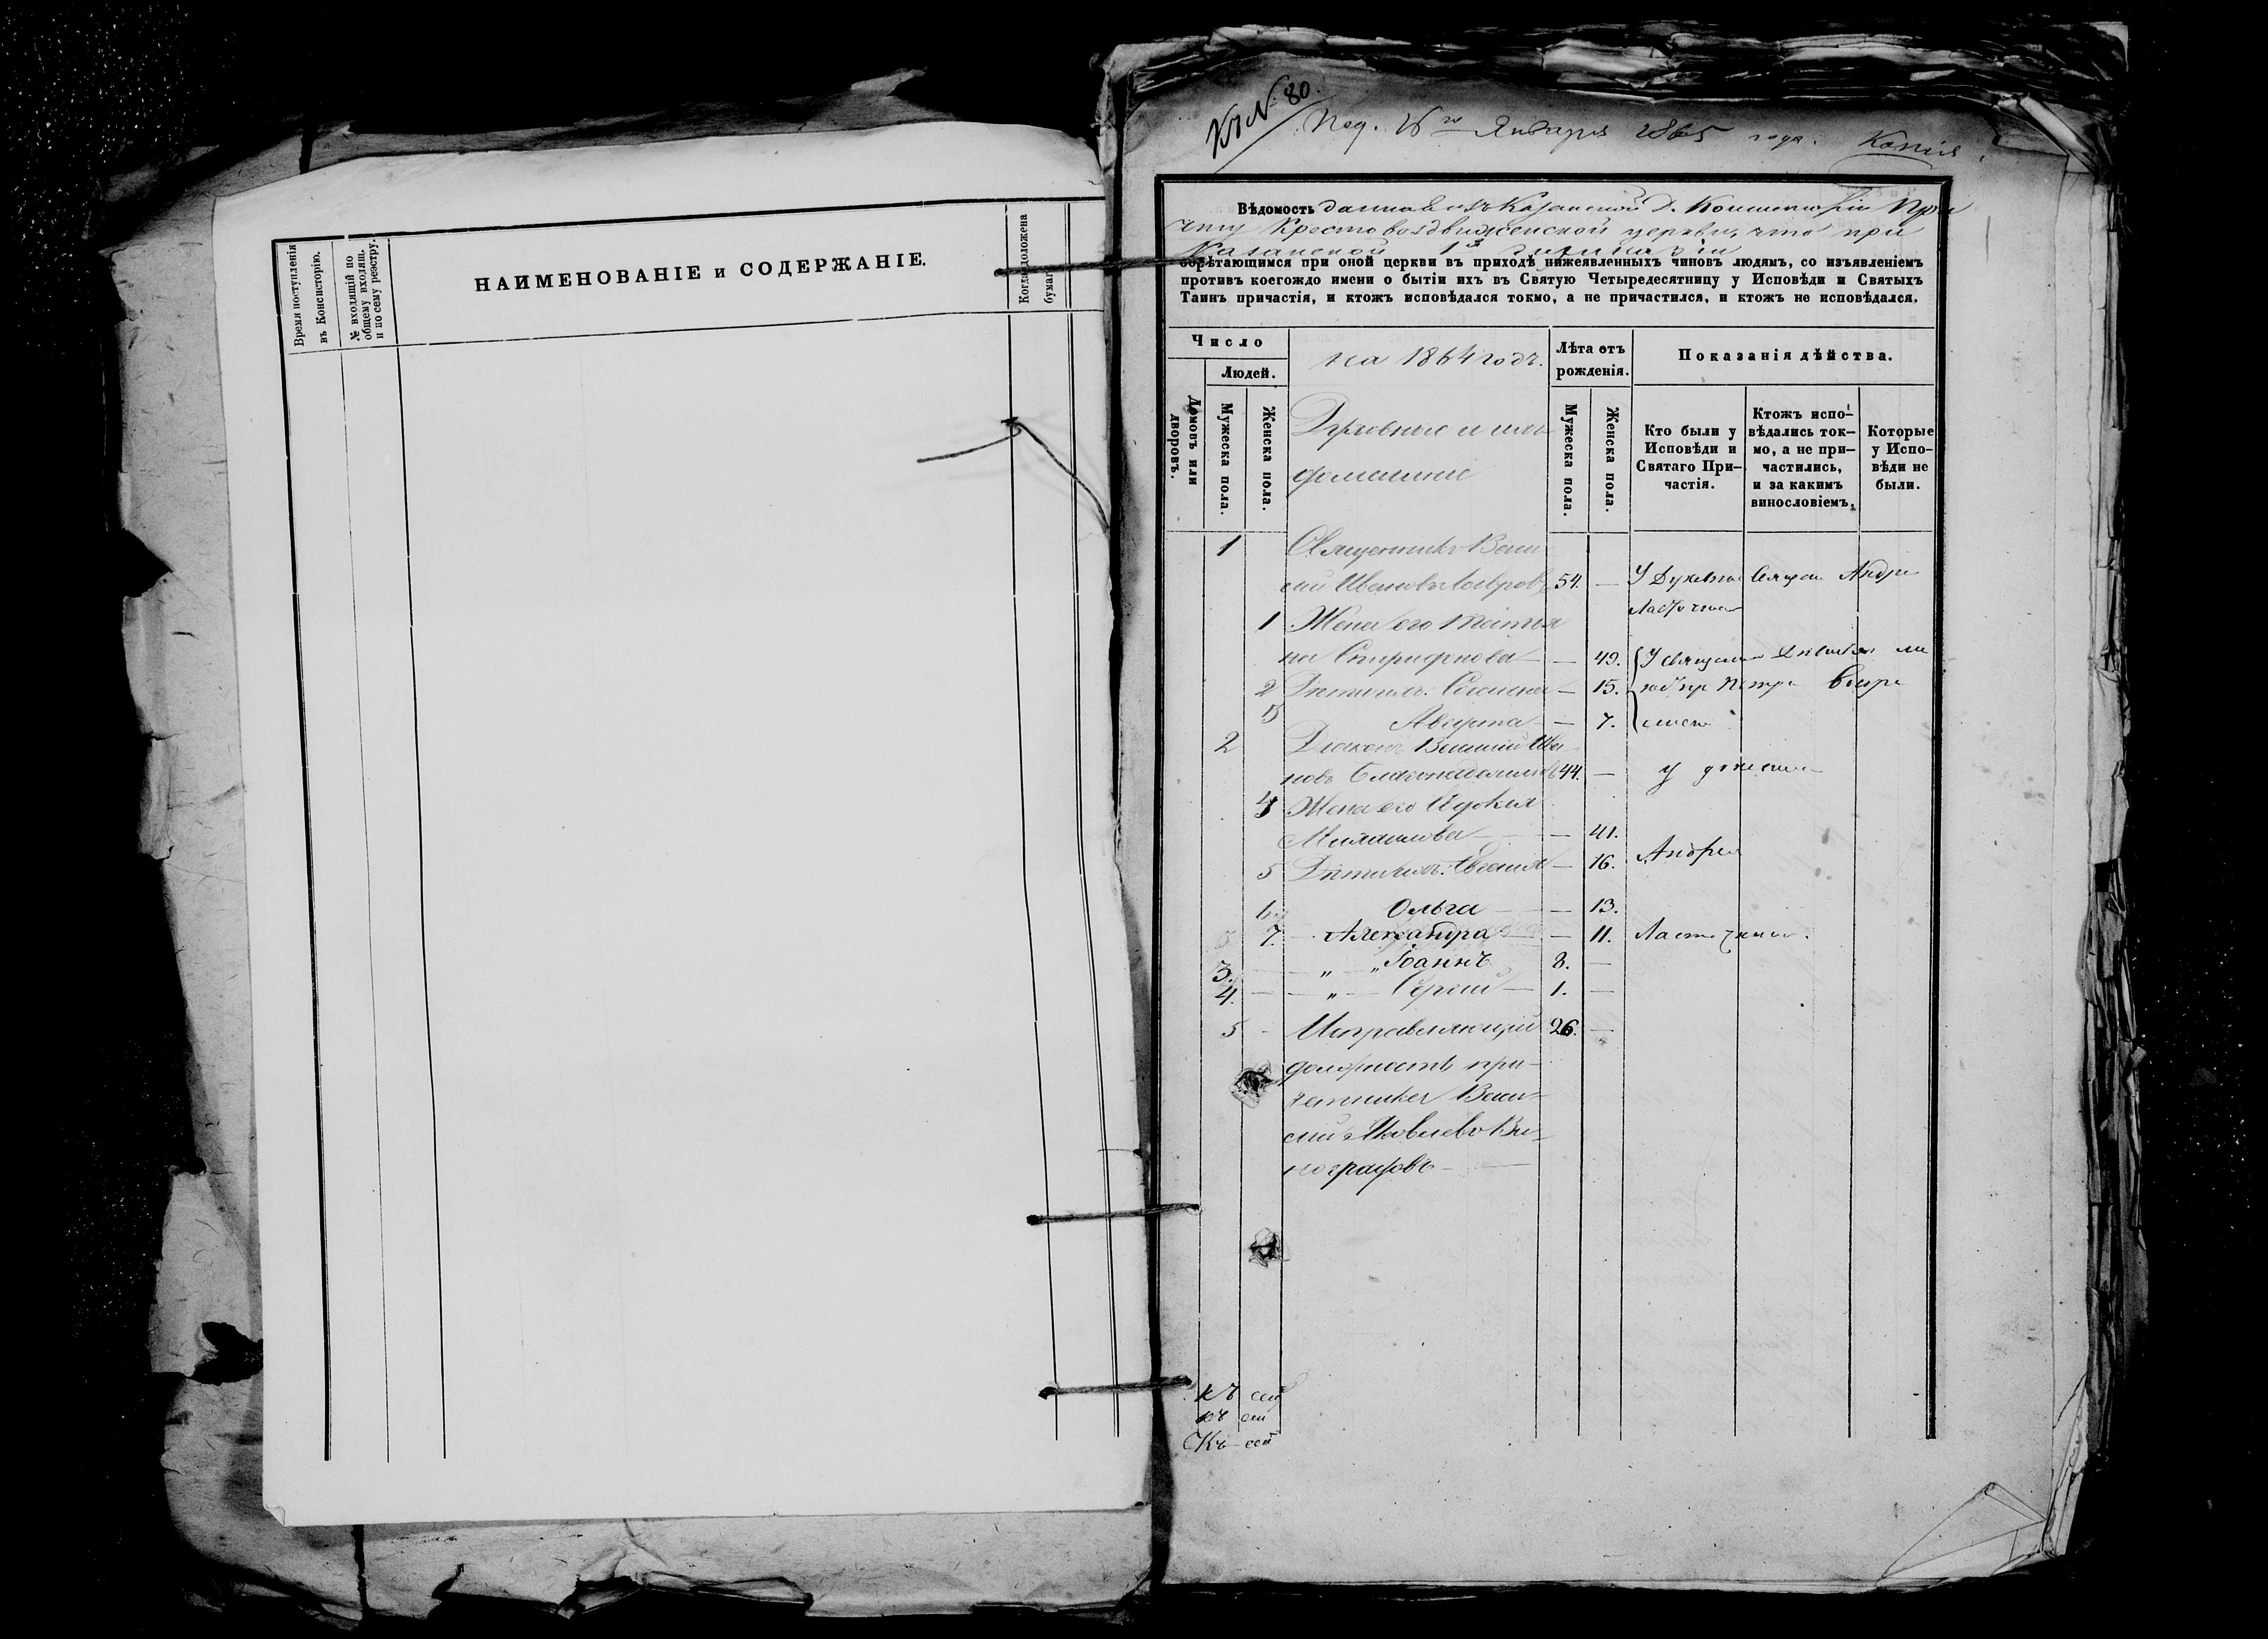 Время поступленія
въ Консисторію.
№ входящій по
общему входящ.
и по сему реэстру.
НАИМЕНОВАНІЕ и СОДЕРЖАНІЕ.
Когда доложена
бумаг
Къ № 80.
Под. 26го Января 1865 года. Копія.
Вѣдомость данная изъ Казанской Д. Консисторіи При
чту Крестовоздвиженской церкви, что при
Казанской 1й гимназіи
обрѣтающимся при оной церкви въ приходѣ нижеявленныхъ чиновъ людямъ, со изъявленіемъ
противъ коегождо имени о бытіи ихъ въ Святую Четыредесятницу у Исповѣди и Святыхъ
Таинъ причастія, и ктожъ исповѣдался токмо, а не причастился, и ктожъ не исповѣдался.
Число
Людей.
Домовъ или
дворовъ.
Мужеска пола.
Женска пола.
на 1864 годъ.
Духовные и ихъ
домашніе
Лѣта отъ
рожденія.
Мужеска пола.
Женска пола.
Показанія дѣйства.
Кто были у
Исповѣди и
Святаго При-
частія.
Ктожъ испо-
вѣдались ток-
мо, а не при-
частились,
и за какимъ
винословіемъ.
Которые
у Испо-
вѣди не
были.
1 Священникъ Васи
лій Ивановъ 54. — У Духовна Андре
1 Жена его Татья
на Спиридонова — 49. У священ
2 Дѣти ихъ: — 15. Петра
3 Августа — 7.
2 Діаконъ Василій Ива
новъ 44. — у
4 Жена его Евдокія
Михайлова — 41.
5 Дѣти ихъ: Евгенія — 16. Андрея
6 Ольга — 13.
7. Александра — 11. Ласточкина.
3. „ „ Іоаннъ 8. —
4. — „ — Сергій — 1. —
5 - Исправляющій 26. —
должность при-
четника Васи-
лій Яковлевъ Ви-
ноградовъ —
къ сей
къ сей
Къ сей